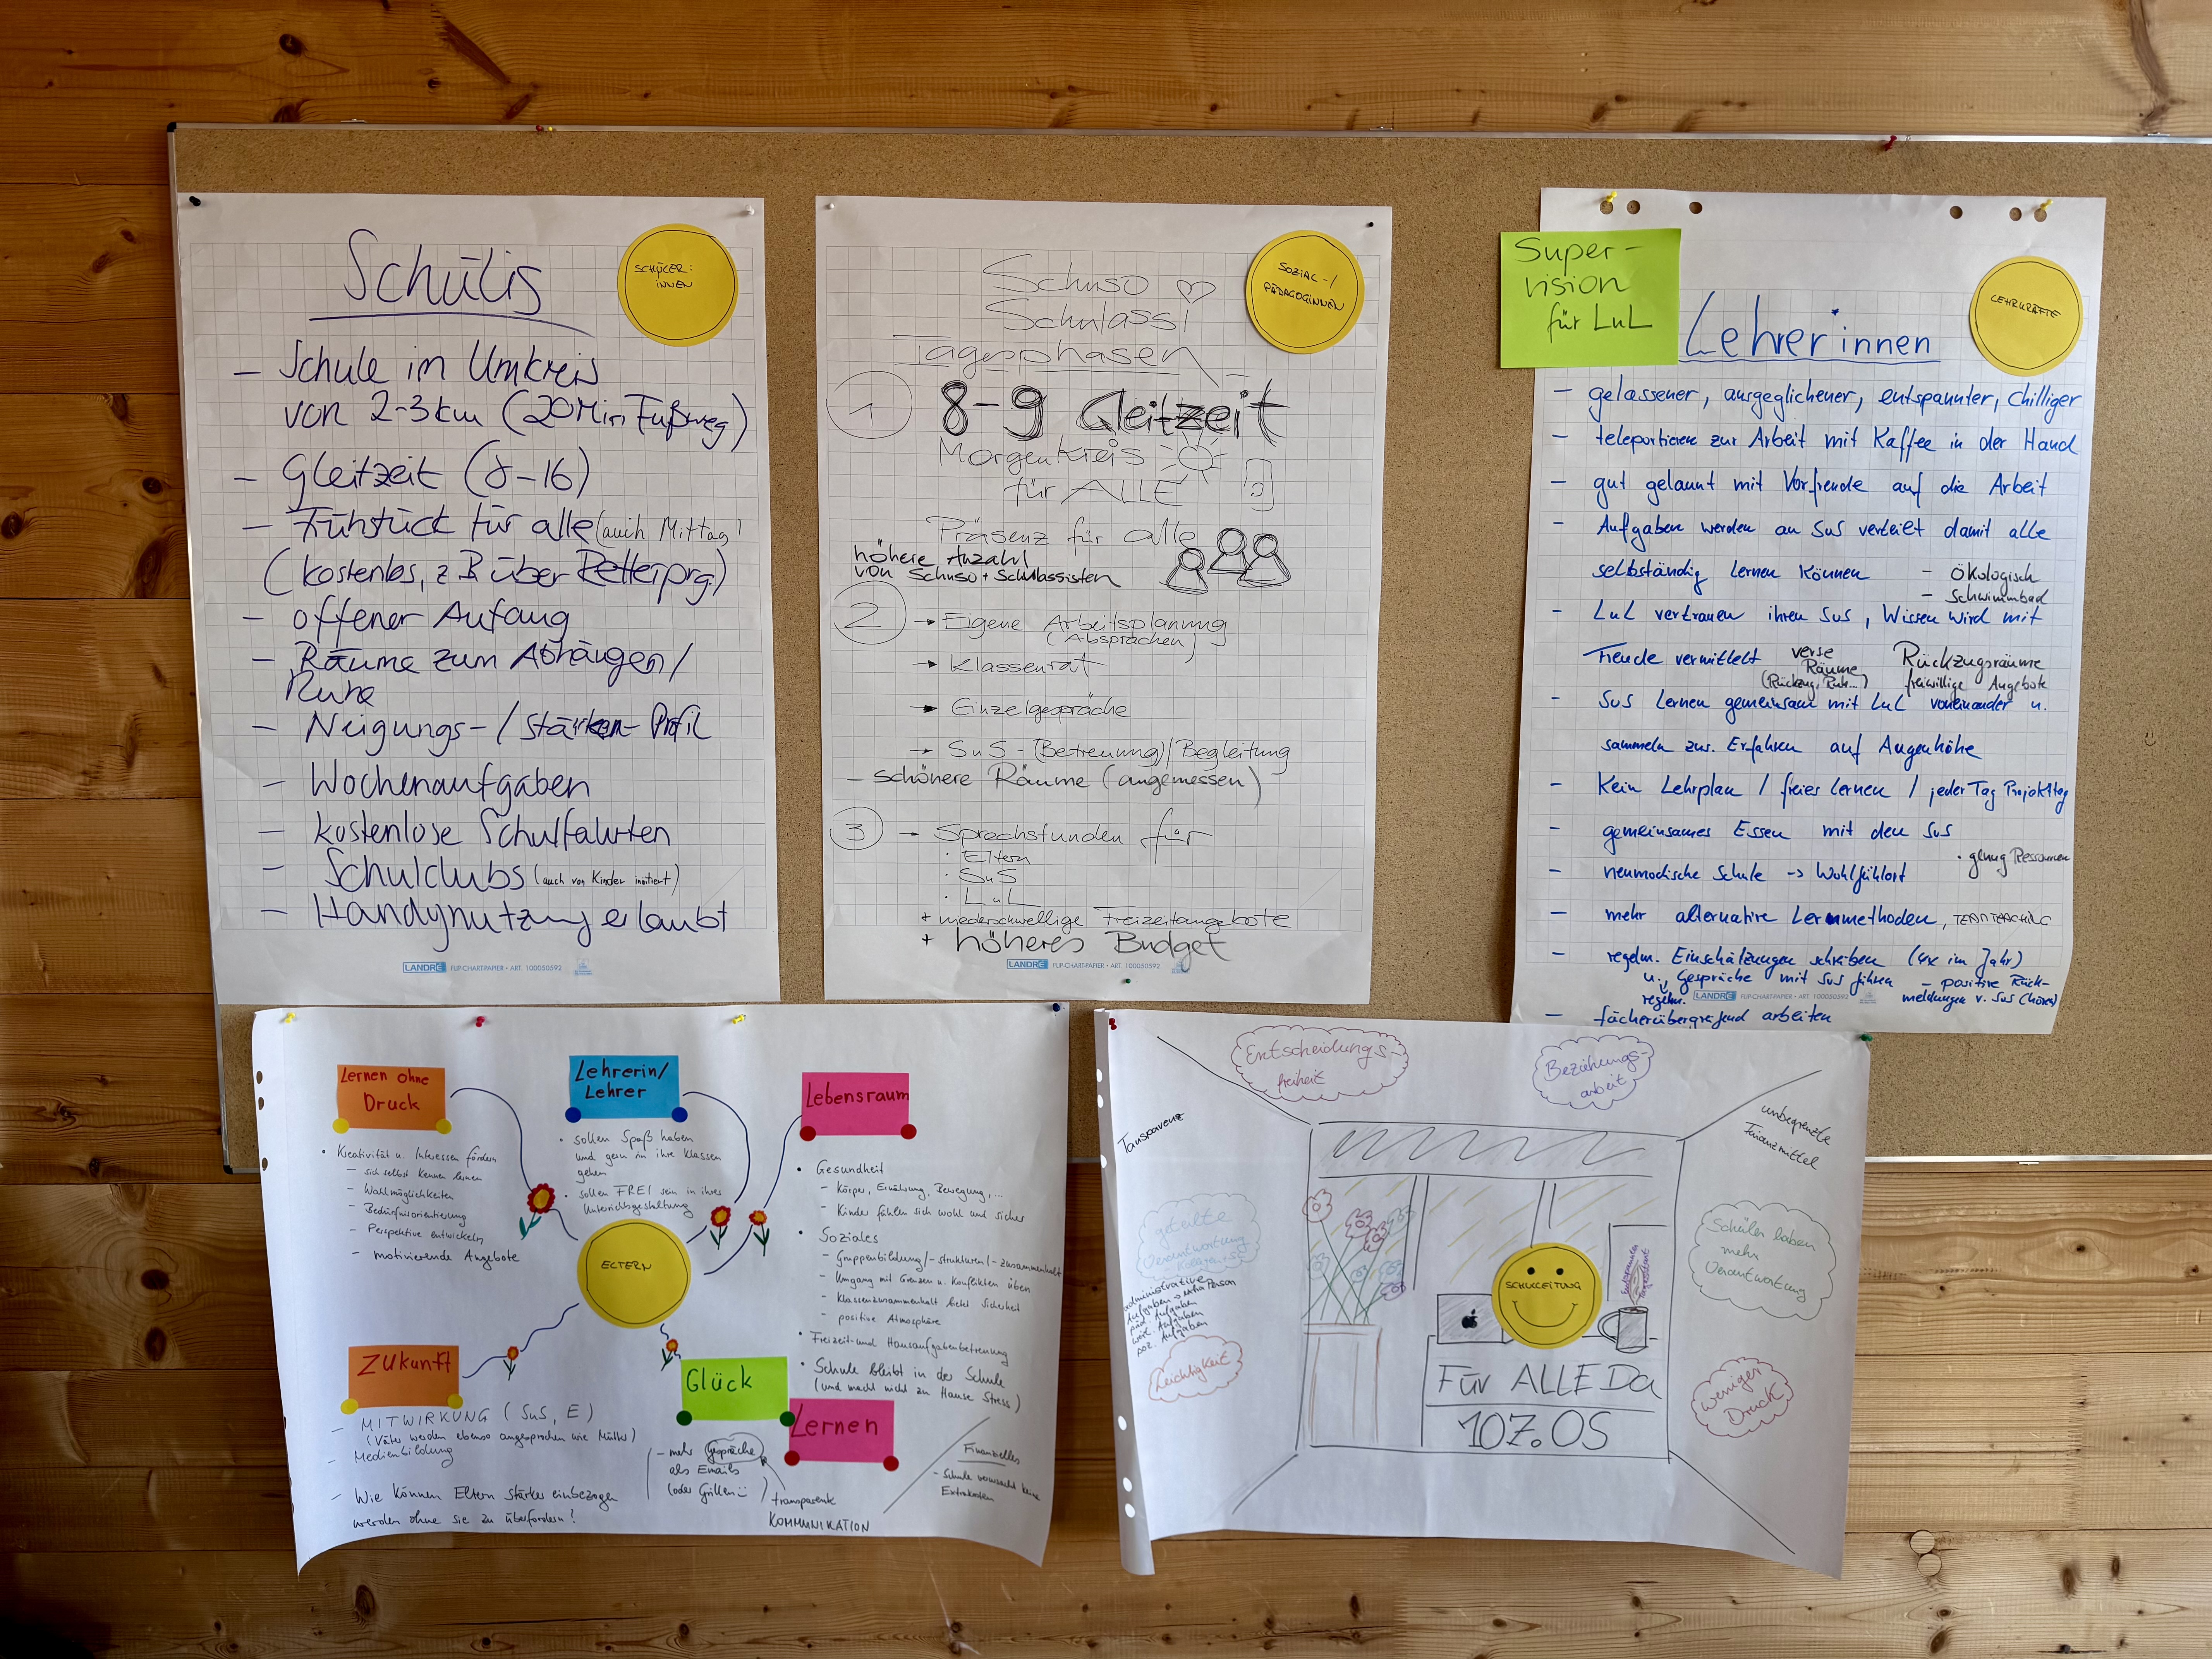 Schülis
SCHÜLER:
INNEN
– Schule im Umkreis
von 2-3km (20 Min Fußweg)
– Gleitzeit (8-16)
– Frühstück für alle (auch Mittag)
(kostenlos, z.B. über Retterprg.)
– offener Anfang
– Räume zum Abhängen/
Ruhe
– Neigungs-/Stärken-Profil
– Wochenaufgaben
– kostenlose Schulfahrten
– Schulclubs (auch von Kinder initiiert)
– Handynutzung erlaubt
LANDRÉ FLIP-CHART-PAPIER • ART. 100050592
Schuso
Schulassi
SOZIAL-/
PÄDAGOGINNEN
Tagesphasen
1 8-9 Gleitzeit
Morgenkreis
für ALLE
Präsenz für alle
höhere Anzahl
von Schuso + Schulassisten
2 → Eigene Arbeitsplanung
(Absprachen)
→ Klassenrat
→ Einzelgespräche
→ SuS-(Betreuung)/Begleitung
– schönere Räume (angemessen)
3 → Sprechstunden für
· Eltern
· SuS
· LuL
+ niederschwellige Freizeitangebote
+ höheres Budget
LANDRÉ FLIP-CHART-PAPIER • ART. 100050592
Super-
vision
für LuL
Lehrer*innen
LEHRKRÄFTE
– gelassener, ausgeglichener, entspannter, chilliger
– teleportieren zur Arbeit mit Kaffee in der Hand
– gut gelaunt mit Vorfreude auf die Arbeit
– Aufgaben werden an SuS verteilt damit alle
selbständig lernen können
– ökologisch
– Schwimmbad
– LuL vertrauen ihren SuS, Wissen wird mit
Freude vermittelt
verse
Räume
(Rückzug, Ruh...)
Rückzugsräume
freiwillige Angebote
– SuS lernen gemeinsam mit LuL voneinander u.
sammeln zus. Erfahren auf Augenhöhe
– Kein Lehrplan / freies Lernen / jeder Tag Projekttag
– gemeinsames Essen mit den SuS
· genug Ressourcen
– neumodische Schule -> Wohlfühlort
– mehr alternative Lernmethoden, TEAMTEACHING
– regelm. Einschätzungen schreiben (4x im Jahr)
u. Gespräche mit SuS führen
regelm.
– positive Rück-
meldungen v. SuS (hören)
LANDRÉ FLIP-CHART-PAPIER • ART. 100050592
– fächerübergreifend arbeiten
Lernen ohne
Druck
• Kreativität u. Interessen fördern
– sich selbst kennen lernen
– Wahlmöglichkeiten
– Bedürfnisorientierung
– Perspektive entwickeln
– motivierende Angebote
Lehrerin/
Lehrer
• sollen Spaß haben
und gern in ihre Klassen
gehen
• sollen FREI sein in ihrer
Unterrichtsgestaltung
Lebensraum
• Gesundheit
– Körper, Ernährung, Bewegung, ...
– Kinder fühlen sich wohl und sicher
• Soziales
– Gruppenbildung/-strukturen/-zusammenhalt
– Umgang mit Grenzen u. Konflikten üben
– Klassenzusammenhalt bietet Sicherheit
– positive Atmosphäre
• Freizeit- und Hausaufgabenbetreuung
• Schule bleibt in der Schule
(und macht nicht zu Hause Stress)
ELTERN
Zukunft
– MITWIRKUNG (SuS, E)
(Väter werden ebenso angesprochen wie Mütter)
– Medienbildung
– Wie können Eltern stärker einbezogen
werden ohne sie zu überfordern?
Glück
Lernen
– mehr Gespräche
als Emails
(oder Grillen)
transparente
KOMMUNIKATION
Finanzielles
– Schule verursacht keine
Extrakosten
Entscheidungs-
freiheit
Beziehungs-
arbeit
Tansparenz
unbegrenzte
Finanzmittel
geteilte
Verantwortung
administrative
Aufgaben → extra Person
päd. Aufgaben
Aufgaben
Aufgaben
Leichtigkeit
Schüler haben
mehr
Verantwortung
weniger
Druck
SCHULLEITUNG
Für ALLE Da
107.OS